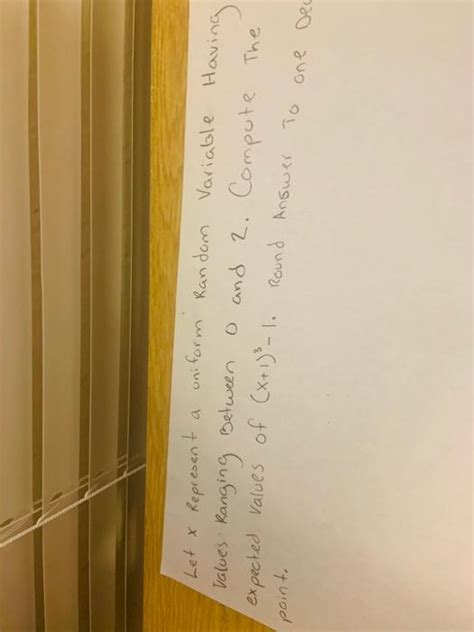 Let x Represent a uniform Random Variable Having
Values Ranging Between 0 and 2. Compute The
expected values of (x+1)³-1. Round Answer To one Dec
point.